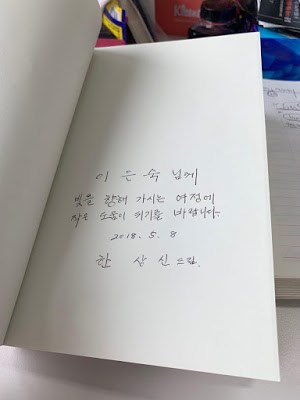 이은숙 님께
빛을 향해 가시는 여정에
작은 도움이 되기를 바랍니다
2018. 5. 8
한 상 신 드림.